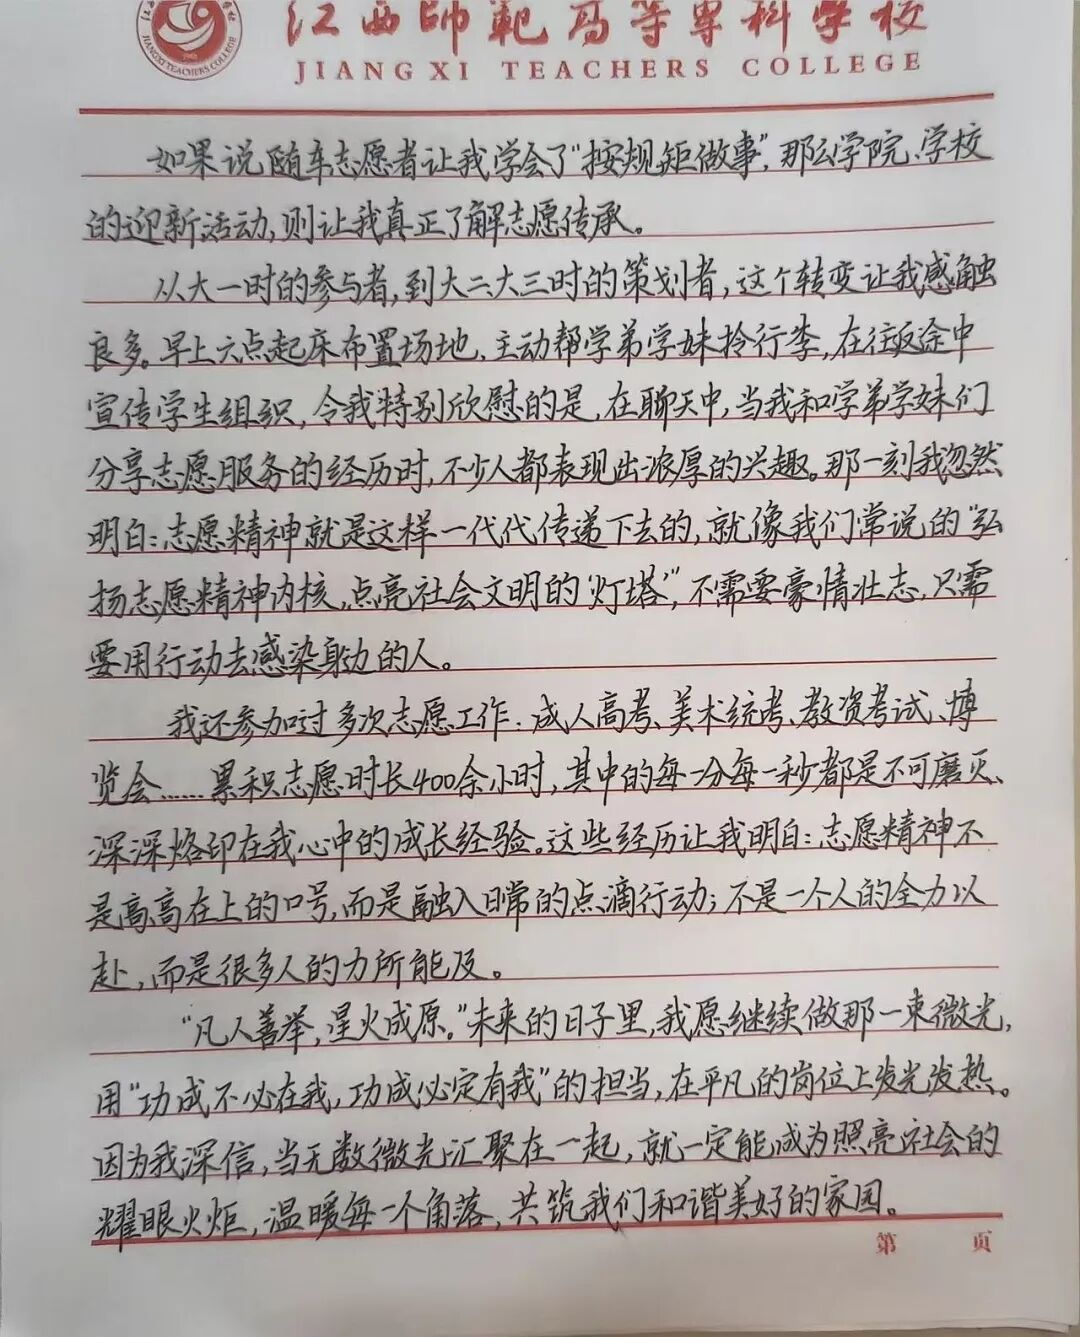 江西師範高等專科学校
JIANGXI TEACHERS COLLEGE
JIANGXI TEACHERS COLLEGE
如果说随车志愿者让我学会了“按规矩做事”,那么学院、学校
的迎新活动,则让我真正了解志愿传承。
从大一时的参与者,到大二大三时的策划者,这个转变让我感触
良多。早上六点起床布置场地、主动帮学弟学妹拎行李,在往返途中
宣传学生组织,令我特别欣慰的是,在聊天中,当我和学弟学妹们
分享志愿服务的经历时,不少人都表现出浓厚的兴趣。那一刻我忽然
明白:志愿精神就是这样一代代传递下去的,就像我们常说的“弘
扬志愿精神内核,点亮社会文明的‘灯塔’”,不需要豪情壮志,只需
要用行动去感染身边的人。
我还参加过多次志愿工作:成人高考、美术统考、教资考试、博
览会……累积志愿时长400余小时,其中的每一分每一秒都是不可磨灭、
深深烙印在我心中的成长经验。这些经历让我明白:志愿精神不
是高高在上的口号,而是融入日常的点滴行动;不是一个人的全力以
赴,而是很多人的力所能及。
“凡人善举,星火成原。”未来的日子里,我愿继续做那一束微光,
用“功成不必在我,功成必定有我”的担当,在平凡的岗位上发光发热。
因为我深信,当无数微光汇聚在一起,就一定能成为照亮社会的
耀眼火炬,温暖每一个角落,共筑我们和谐美好的家园。
第 页